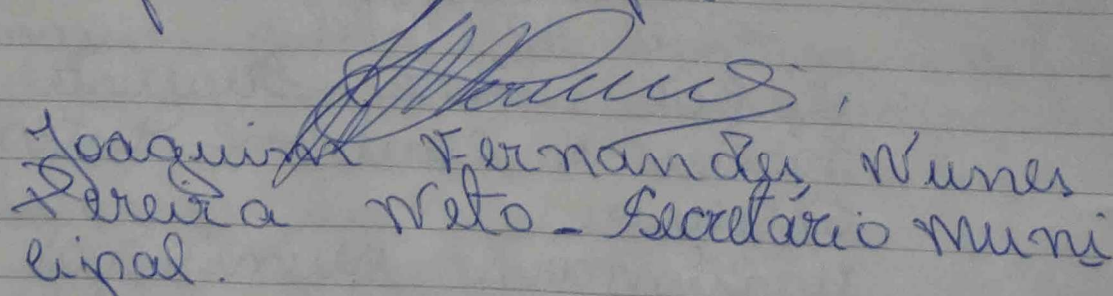 Joaquim Fernandes Nunes
Pereira Neto - Secretário Muni
cipal.